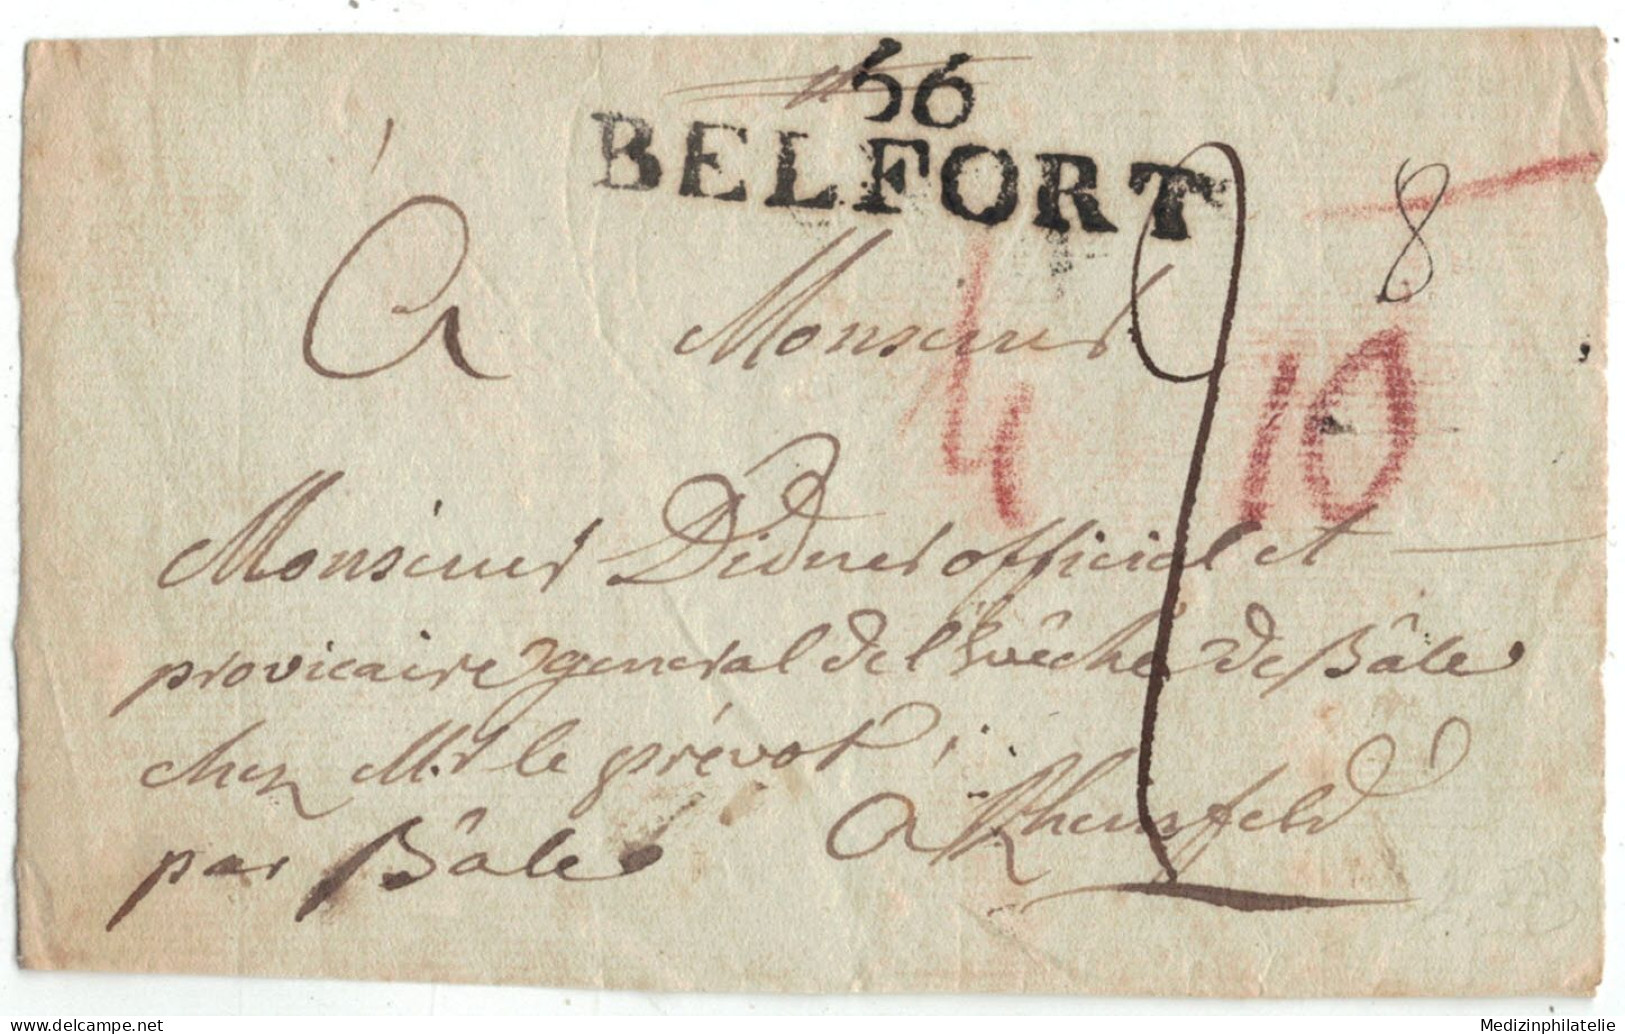 66
BELFORT
8
A Monsieur
4 10
Monsieur Didner official et
provicaire general de l'Evêché de Bâle
chez Mr le prévot,
par Bâle à Rheinsfeld
www.delcampe.net
Medizinphilatelie